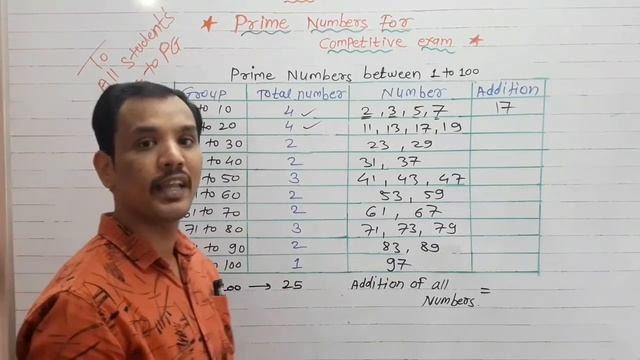 Prime Numbers For
Competitive exam
To
All Students
to PG
Prime Numbers between 1 to 100
Group Total number Number Addition
to 10 4 ✓ 2, 3, 5, 7 17
to 20 4 ✓ 11, 13, 17, 19
to 30 2 23, 29
to 40 2 31, 37
to 50 3 41, 43, 47
to 60 2 53, 59
to 70 2 61, 67
71 to 80 3 71, 73, 79
to 90 2 83, 89
100 1 97
100 → 25 Addition of all =
Numbers